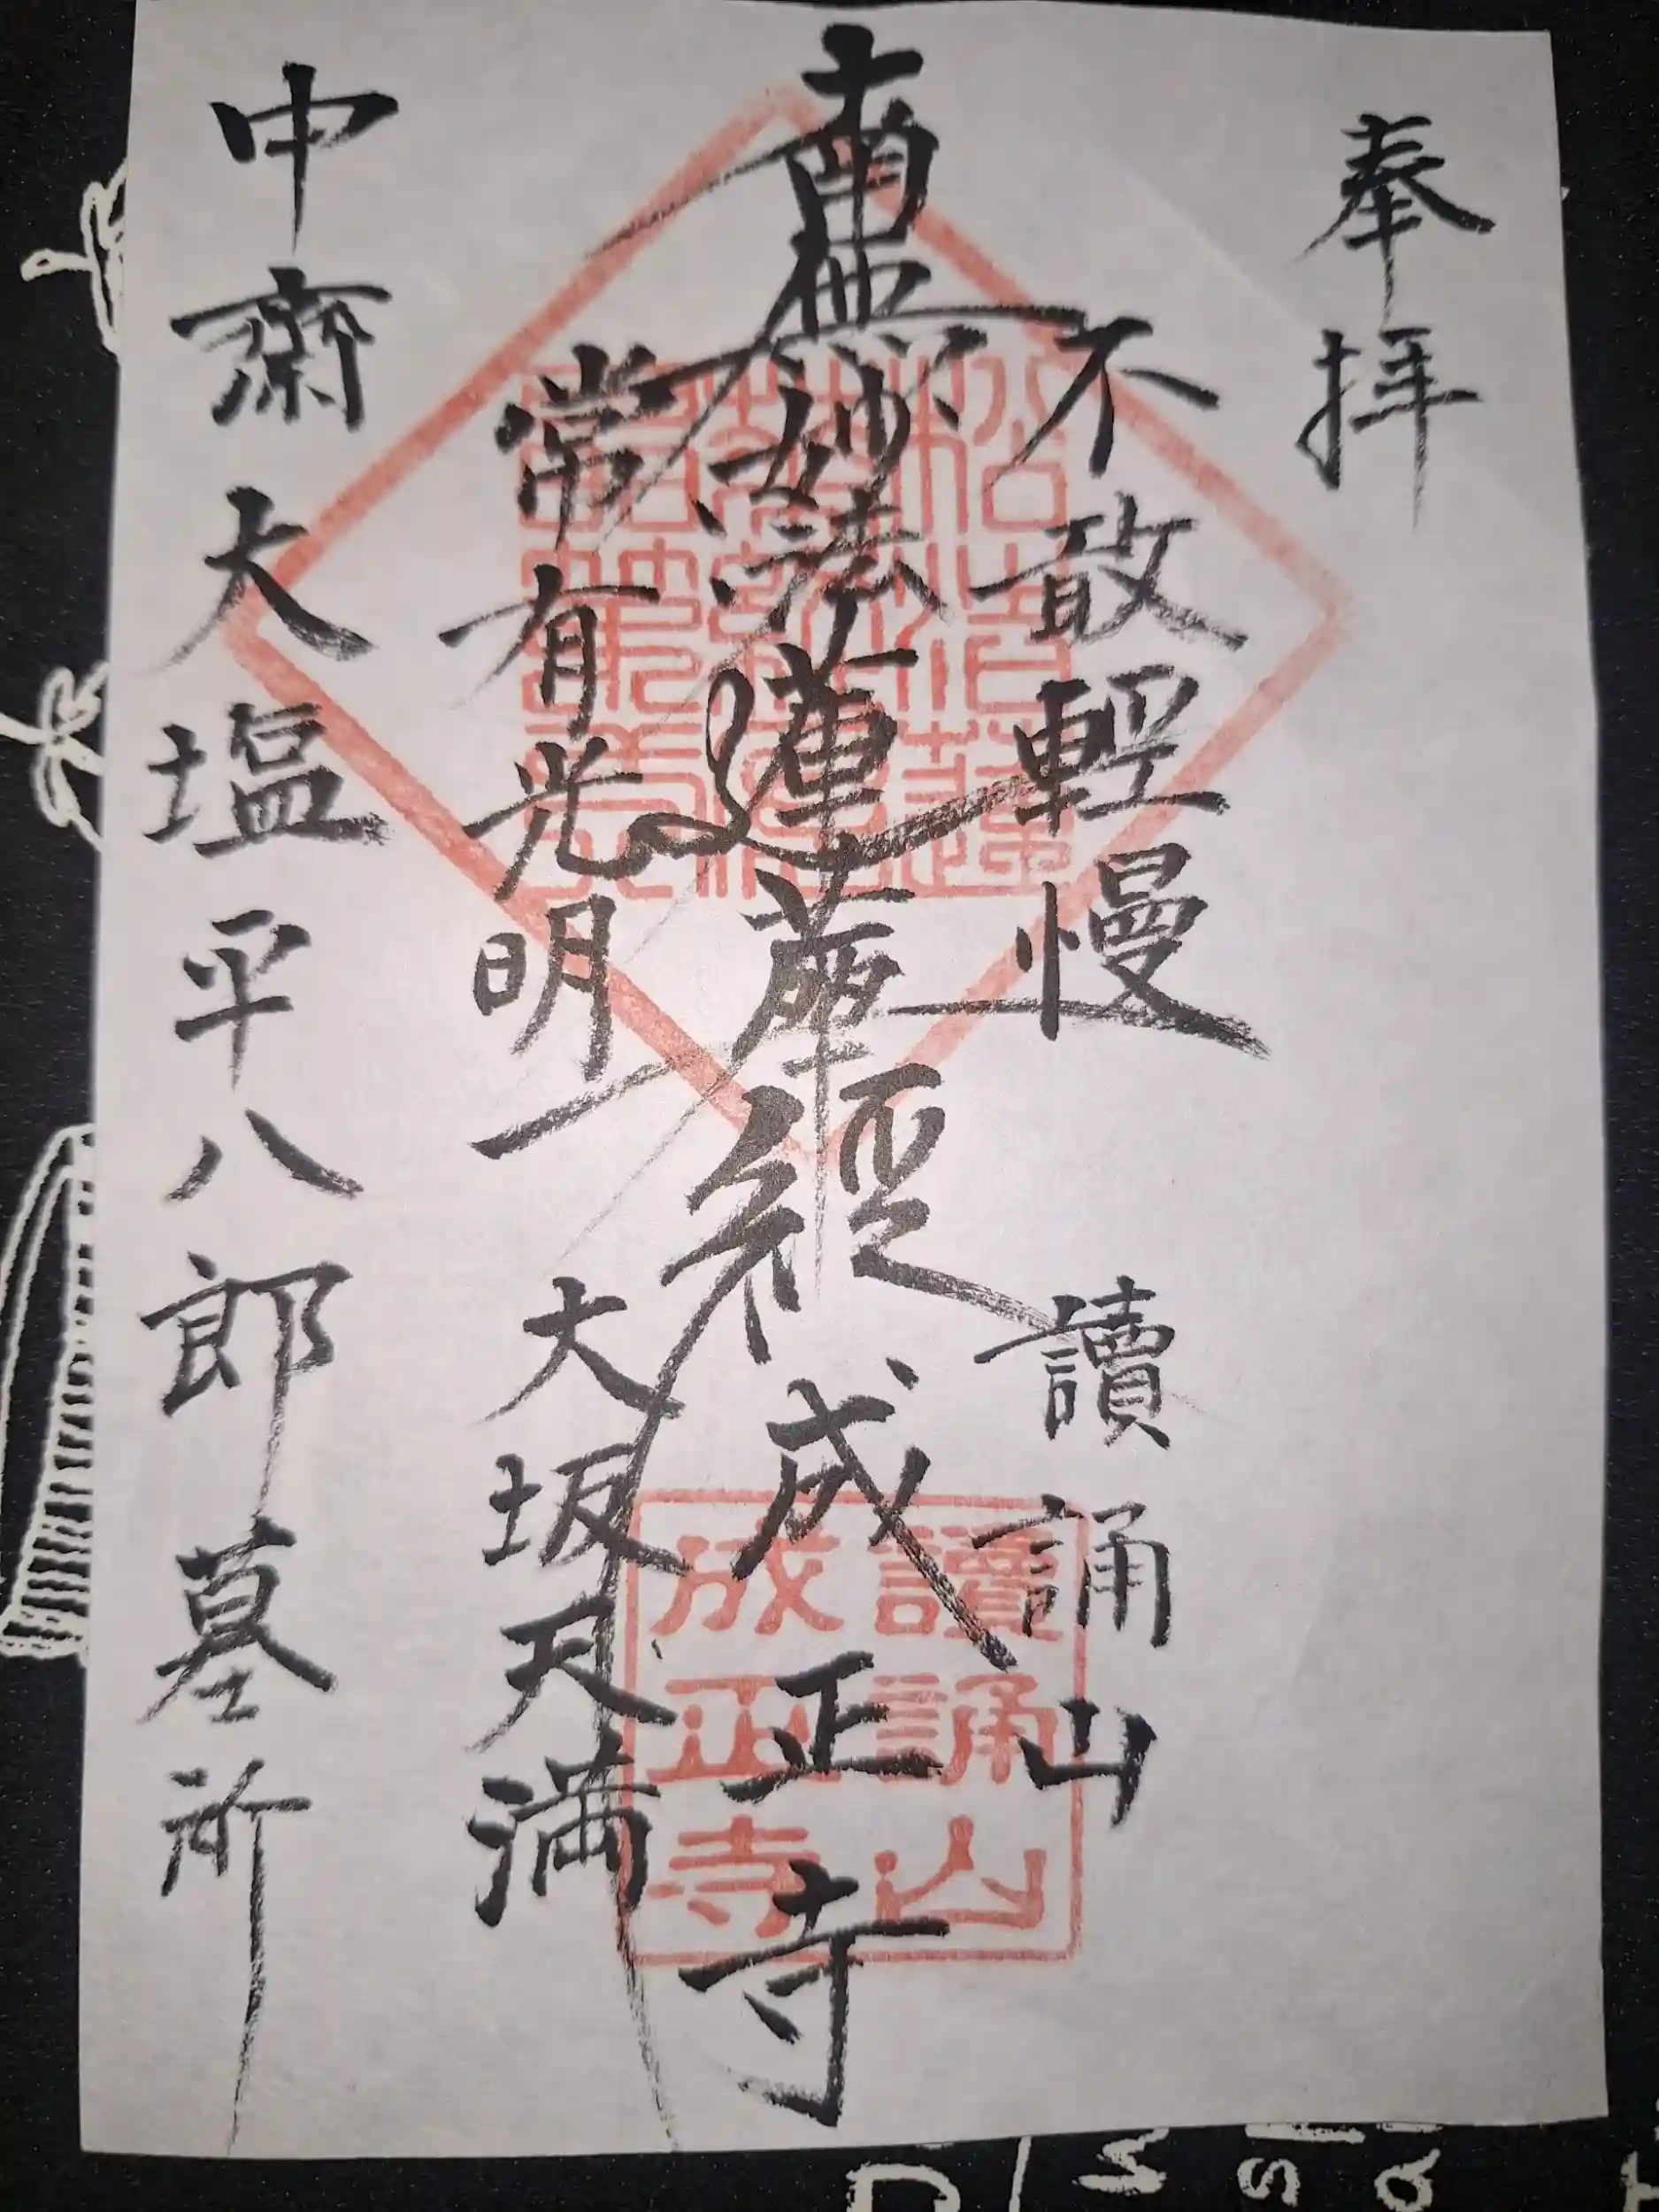 奉拝
不敢軽慢
讀誦山
南無妙法蓮華経
成正寺
常有光明
大坂天満
中齋大塩平八郎墓所
讀誦山
成正寺